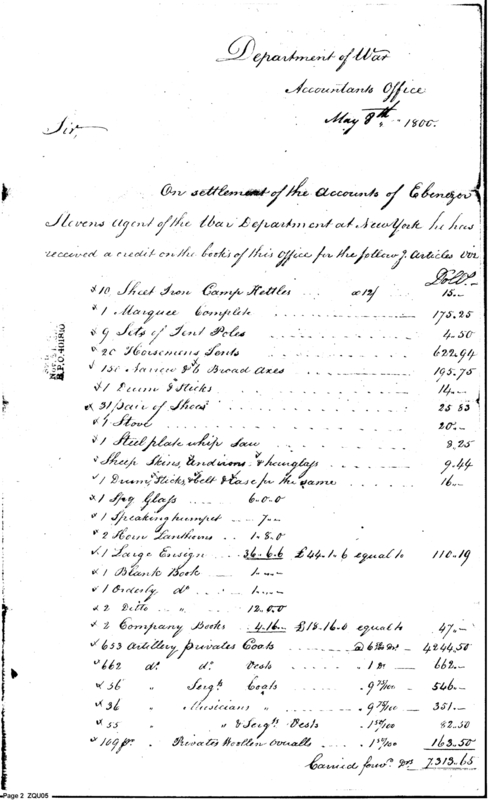 Department of War
Accountants Office
May 8th 1800.
Sir,
On settlement of the accounts of Ebenezer
Stevens agent of the War Department at New York he has
received a credit on the books of this Office for the follow.g Articles viz
Doll.s
10 Sheet Iron Camp Kettles . . . a 12/ . . . 15.—
1 Marquee Complete . . . 175.25
9 Sets of Tent Poles . . . 4.50
20 Horsemens Tents . . . 622.94
150 Narrow & 6 Broad Axes . . . 195.75
1 Drum & Sticks . . . 14.—
31 pair of Shoes . . . 25 83
1 Stove . . . 20.—
1 Steel plate whip Saw . . . 8.25
Sheep Skins, Andirons & hourglass . . . 9.44
1 Drum, Sticks, belt & Case for the same . . . 16.—
1 Spy Glass . . . 6.0.0
1 Speaking trumpet . . . 7.—
2 Horn Lanthorns . . . 1.8.0
1 Large Ensign . . . 36.6.6 £44.1.6 equal to 110.19
1 Blank Book . . . 1.—
1 Orderly do . . . 1.—
2 Ditto " . . . 12.0.0
2 Company Books . . . 4.16 £18.16.0 equal to 47.—
653 Artillery privates Coats . . . 4244.50
662 do. do. Vests . . . 1 Dr . . . 662.—
56 " Sergts Coats . . . 9 75/100 . . . 546.—
36 " Musicians " . . . 9 75/100 . . . 351.—
55 " " & Sergts Vests . . . 1 50/100 . . . 82.50
109 pr. Privates Woollen overalls . . . 1 50/100 . . . 163.50
Carried forwd. Drs 7313.65
Page 2 ZQU05